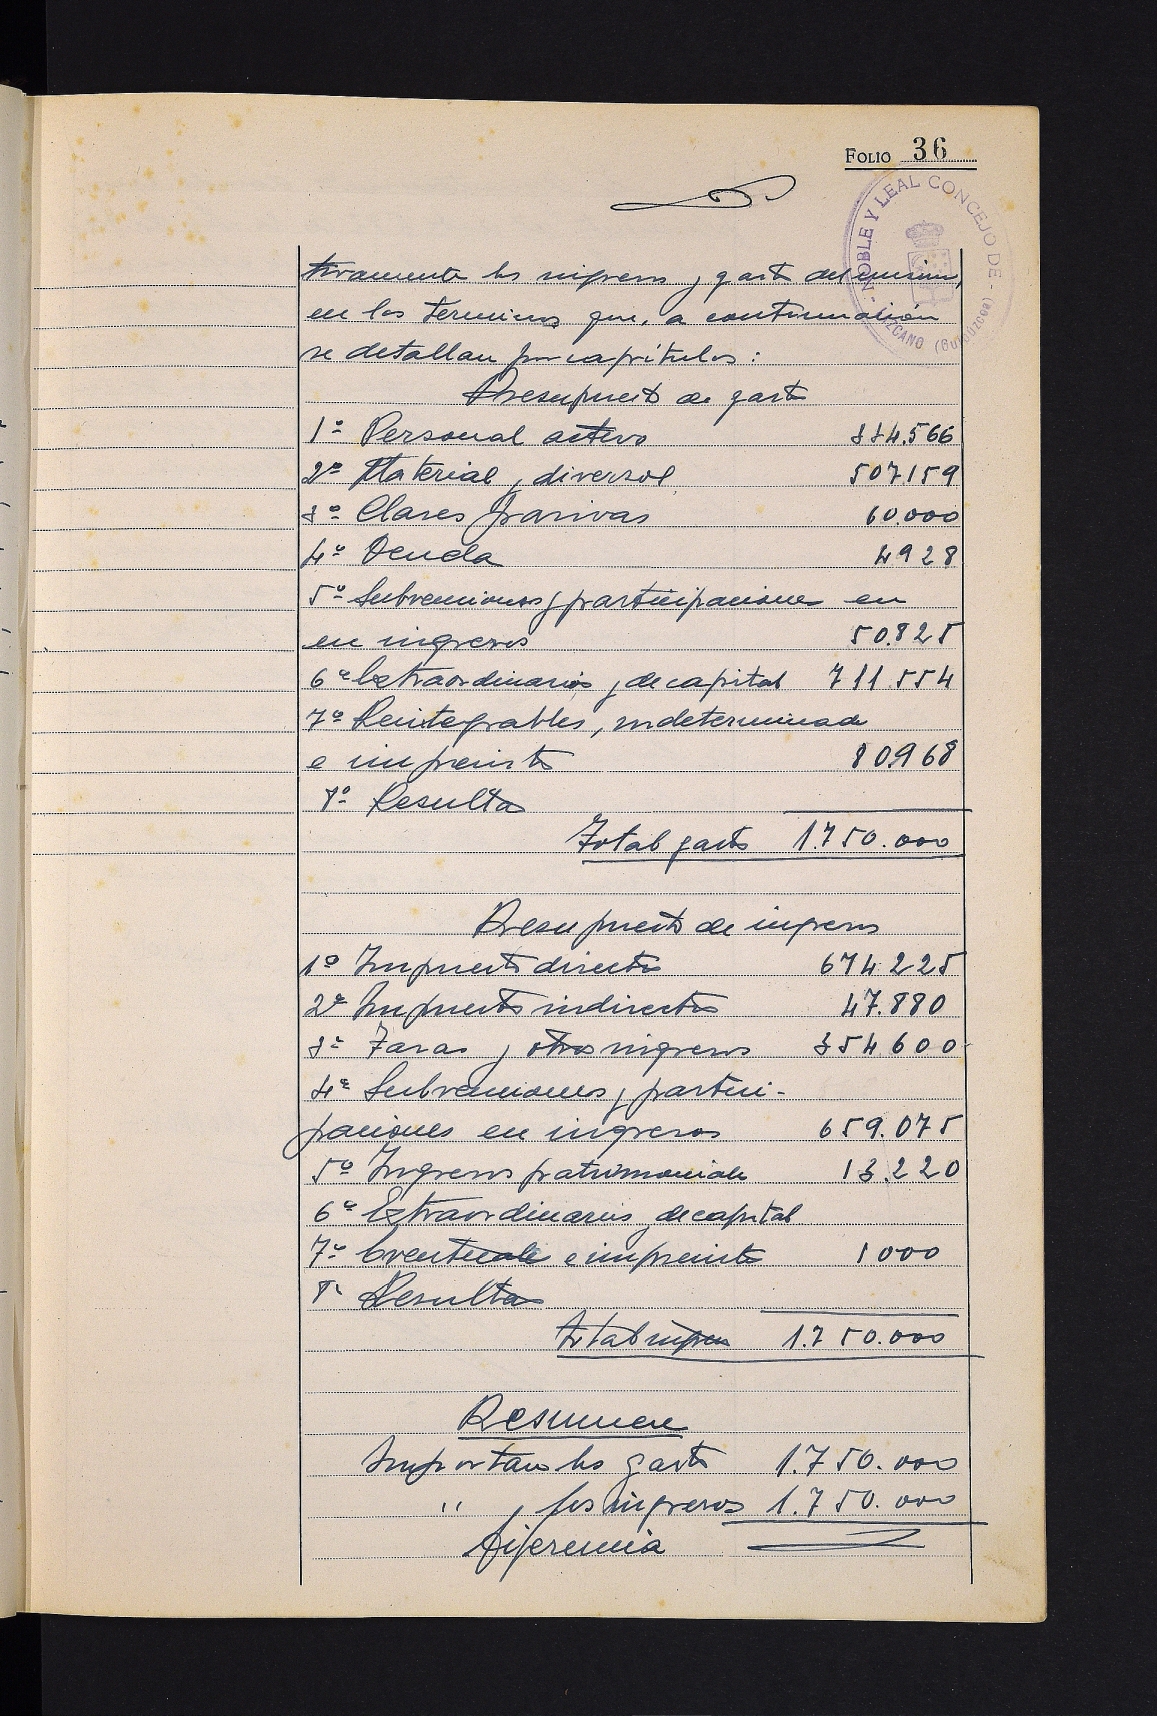 FOLIO 36
NOBLE Y LEAL CONCEJO DE - LAZCANO (Guipúzcoa)
tivamente los ingresos y gastos del mismo,
en los terminos que, a continuación
se detallan por capítulos:
Presupuesto de gastos
1º Personal activo 334.566
2º Material y diversos 507159
3º Clases pasivas 60.000
4º Deuda 4928
5º Subvenciones y participaciones en
en ingresos 50.825
6º Extraordinarios y de capital 711.554
7º Reintegrables, indeterminados
e imprevistos 80.968
8º Resultas
Total gastos 1.750.000
Presupuesto de ingresos
1º Impuestos directos 674.225
2º Impuestos indirectos 47.880
3º Tasas y otros ingresos 354.600
4º Subvenciones y partici-
paciones en ingresos 659.075
5º Ingresos patrimoniales 13.220
6º Extraordinarios y de capital
7º Eventuales e imprevistos 1000
8º Resultas
Total ingresos 1.750.000
Resumen
Importan los gastos 1.750.000
" los ingresos 1.750.000
Diferencia